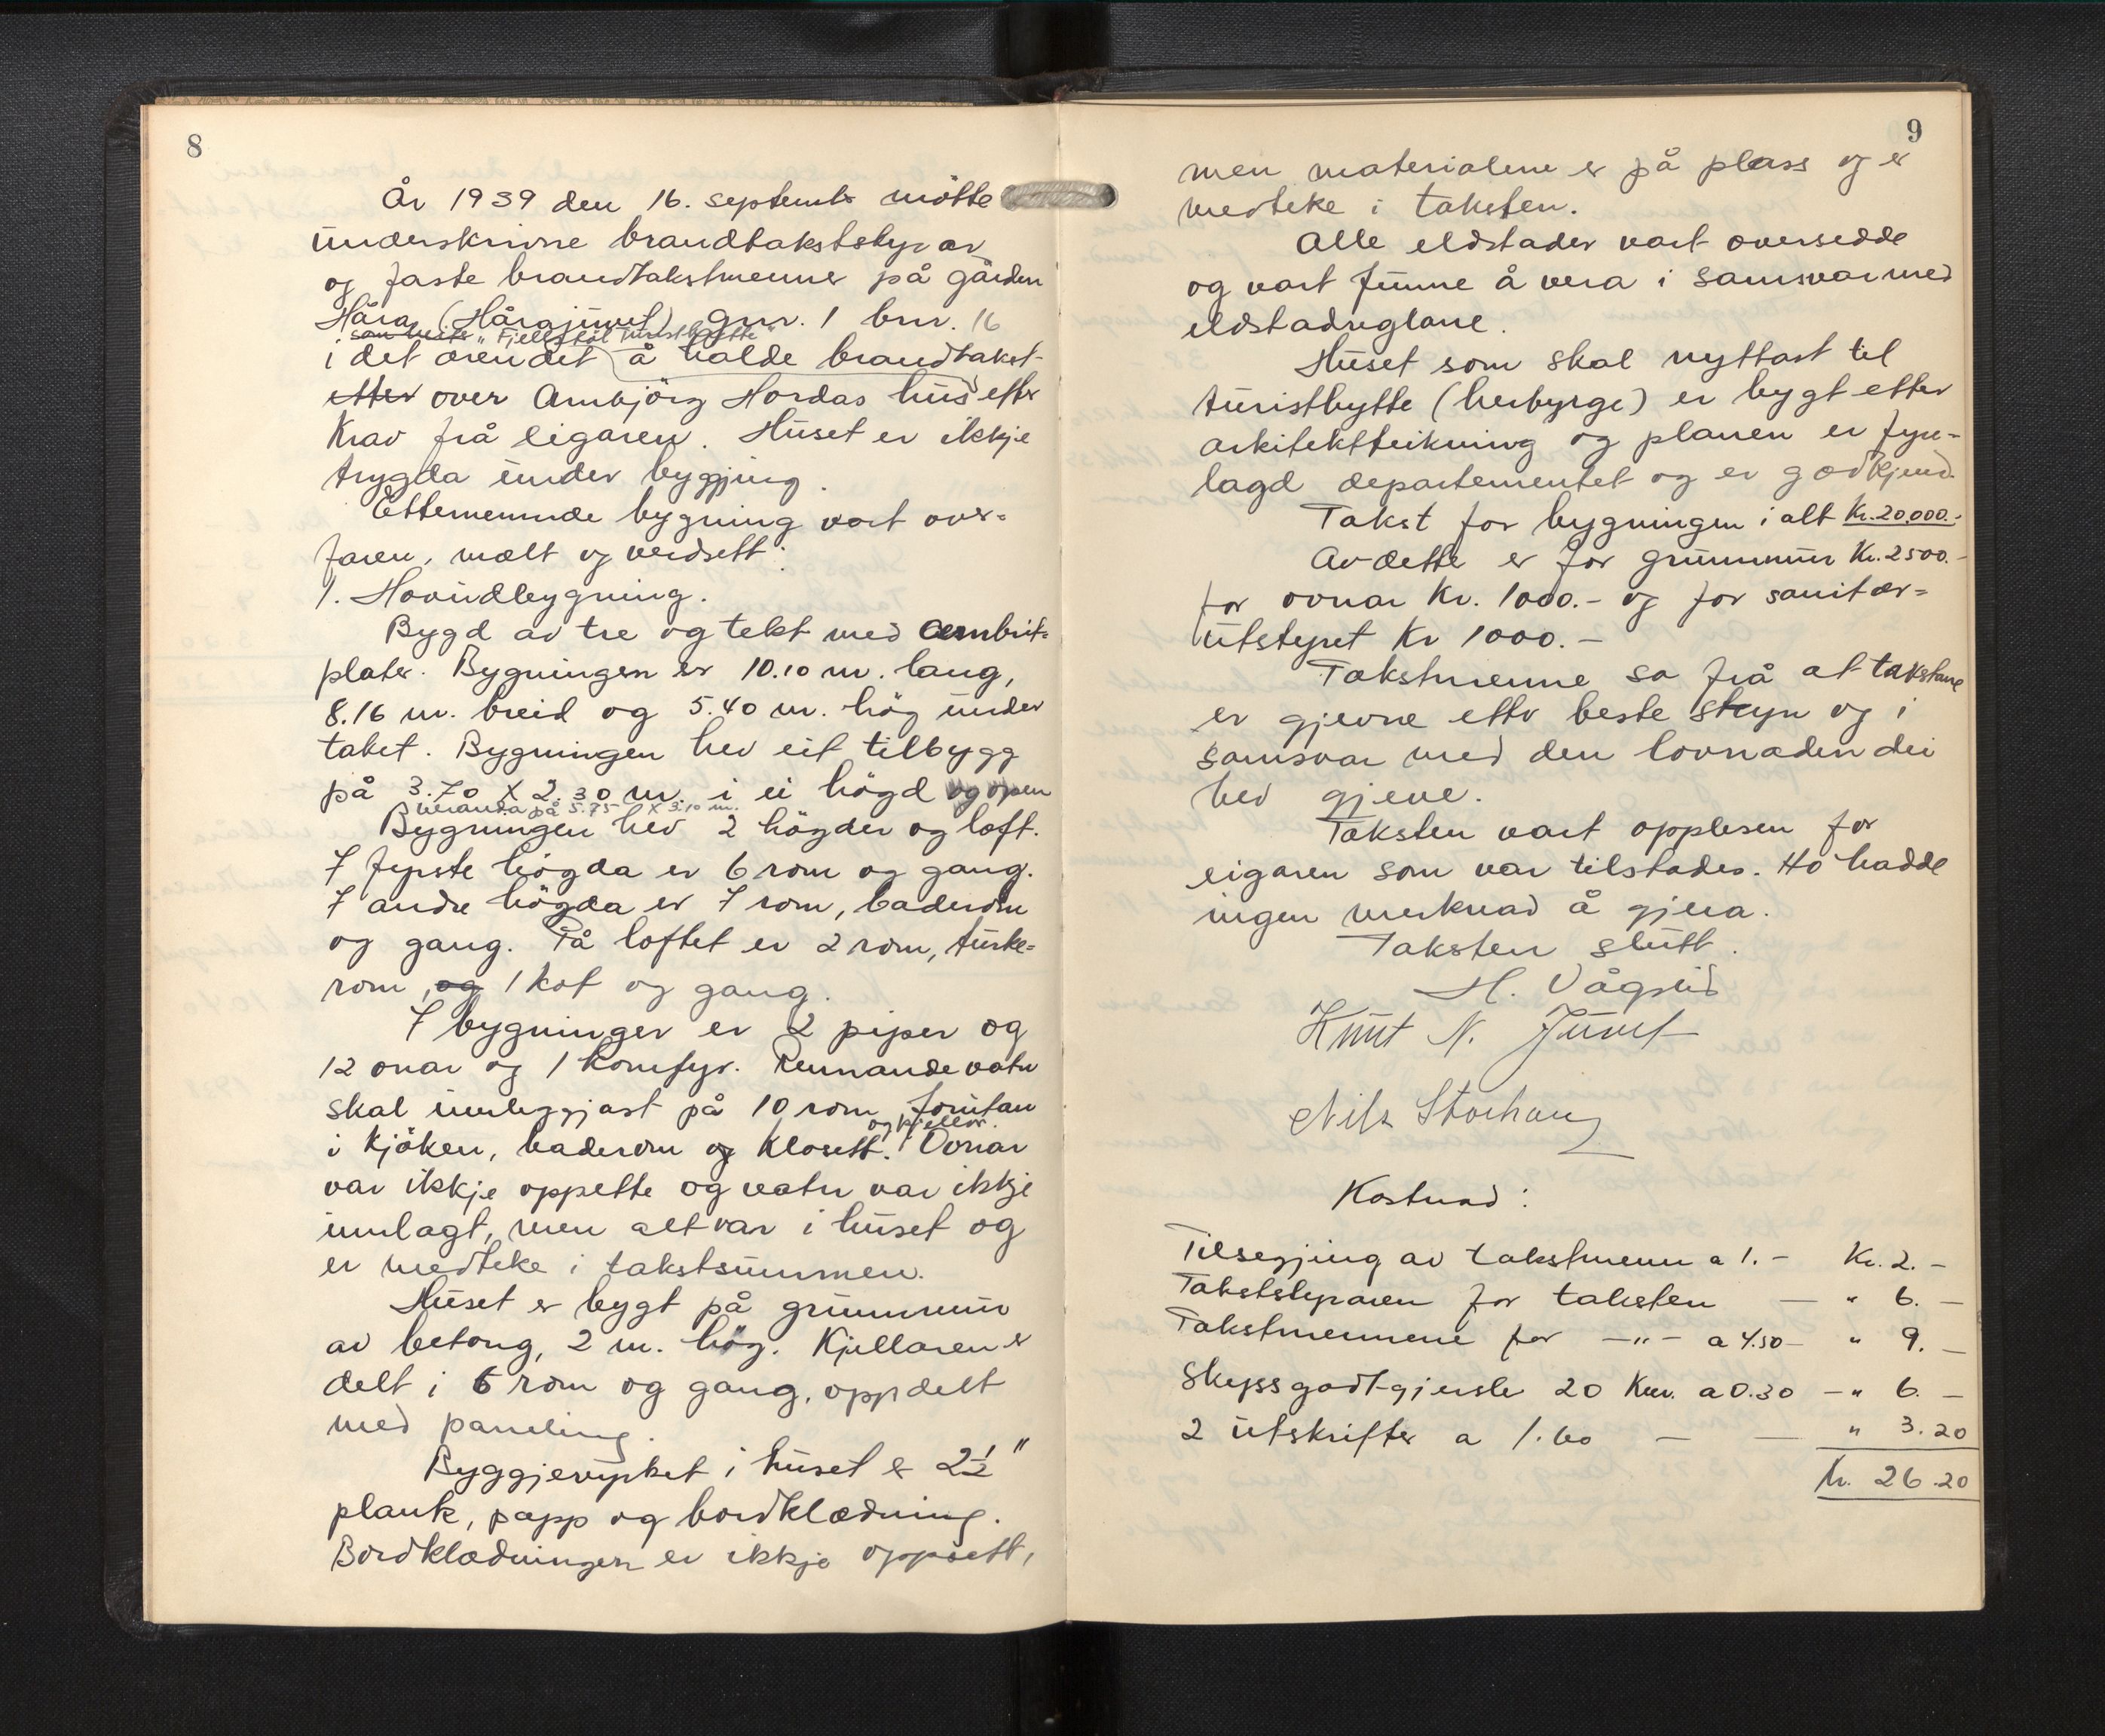 8
År 1939 den 16. septembr møtte
underskrivne brandtakststyrar
og faste brandtakstmenner på garden
Håra (Hårajuvet) gnr. 1 bnr. 16
som heite "Fjellstøl Turisthytte"
i det ørendet å halde brandtakst
etter over Ambjörg Hordas hus efter
Krav frå eigaren. Huset er ikkje
trygda under byggjing.
Etternemnde bygning vart over=
faren, mælt og verdsett:
1. Hovudbygning.
Bygd av tre og tekt med
plater. Bygningen er 10.10 m. lang,
8.16 m. breid og 5.40 m. hög under
taket. Bygningen hev eit tilbygg
på 3.70 X 2.30 m. i ei högd og open
veranda på 5.75 X 3.10 m.
Bygningen hev 2 högder og loft.
I fyrste högda er 6 rom og gang.
I andre högda er 7 rom, baderom
og gang. På loftet er 2 rom, turke=
rom, og 1 kot og gang.
I bygningen er 2 piper og
12 onar og 1 Komfyr. Rennande vatn
skal innleggjast på 10 rom forutan
og kjeller.
i kjöken, baderom og Klosett. Ovnar
var ikkje oppsette og vatn var ikkje
innlagt, men alt var i huset og
er medteke i takstsummen.
Huset er bygt på grunnmur
av betong, 2 m. hög. Kjellaren er
delt i 6 rom og gang, oppdelt
med paneling.
Byggjevyrket i huset er 2½"
plank, papp og bordklædning.
Bordklædningen er ikkje oppsett,
9
men materialene er på plass og er
medteke i taksten.
Alle eldstader vart oversedde
og vart funne å vera i samsvar med
eldstadreglane.
Huset som skal nyttast til
turisthytte (herbyrge) er bygt etter
arkitektteikning og planen er fyre=
lagd departementet og er godkjend.
Takst for bygningen i alt Kr. 20,000.-
Av dette er for grunnmur Kr. 2500.-
for ovnar Kr. 1000.- og for sanitær=
utstyret Kr 1000.-
Takstmenne sa frå at takstane
er gjevne etter beste skyn og i
samsvar med den lovnaden dei
hev gjeve.
Taksten vart opplesen for
eigaren som var tilstades. Ho hadde
ingen merknad å gjera.
Taksten slutt.
H. Vågslid
Knut N. Juvet
Nils Storhaug
Kostnad:
Tilsegjing av takstmenn a 1.- Kr. 2.-
Takststyraren for taksten — " 6.-
Takstmennene for —"— a 4.50- " 9.-
Skyssgodtgjersle 20 Km. a 0.30 — " 6.-
2 utskrifter a 1.60 — — " 3.20
Kr. 26.20